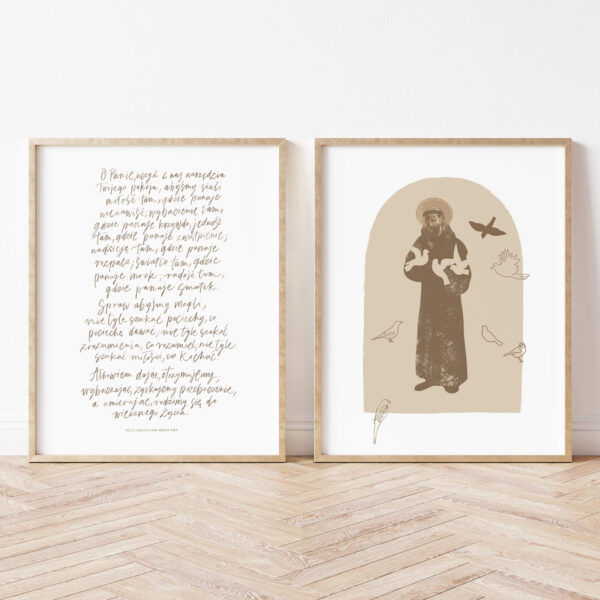 O Panie, uczyń z nas narzędzia
Twojego pokoju, abyśmy siali
miłość tam, gdzie panuje
nienawiść; wybaczenie tam,
gdzie panuje krzywda, jedność
tam, gdzie panuje zwątpienie;
nadzieję tam, gdzie panuje
rozpacz; światło tam, gdzie
panuje mrok; radość tam,
gdzie panuje smutek.
Spraw abyśmy mogli,
nie tyle szukać pociechy, co
pociechę dawać; nie tyle szukać
zrozumienia, co rozumieć, nie tyle
szukać miłości, co kochać
Albowiem dając, otrzymujemy,
wybaczając, zyskujemy przebaczenie,
a umierając, rodzimy się do
wiecznego życia.